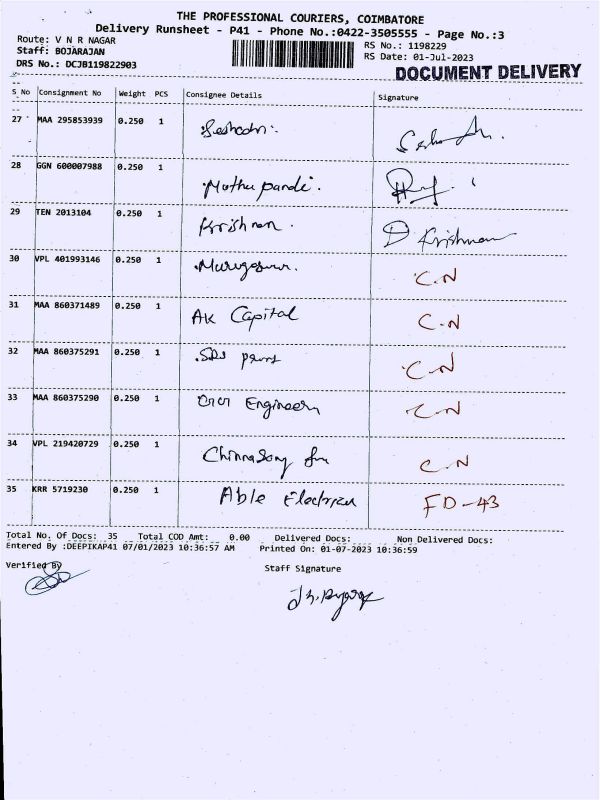 THE PROFESSIONAL COURIERS, COIMBATORE
Delivery Runsheet - P41 - Phone No.:0422-3505555 - Page No.:3
Route: V N R NAGAR
RS No.: 1198229
Staff: BOJARAJAN
RS Date: 01-Jul-2023
DRS No.: DCJB119822903
DOCUMENT DELIVERY
S No Consignment No Weight PCS Consignee Details Signature
27 MAA 295853939 0.250 1 Seshadri
28 GGN 600007988 0.250 1 Muthu pandi.
29 TEN 2013104 0.250 1 Krishnan. D Krishnan
30 VPL 401993146 0.250 1 C.N
31 MAA 860371489 0.250 1 AK Capital C.N
32 MAA 860375291 0.250 1 C.N
33 MAA 860375290 0.250 1 Engineers C-N
34 VPL 219420729 0.250 1 C.N
35 KRR 5719230 0.250 1 Able FD-43
Total No. Of Docs: 35 Total COD Amt: 0.00 Delivered Docs: Non Delivered Docs:
Entered By :DEEPIKAP41 07/01/2023 10:36:57 AM Printed On: 01-07-2023 10:36:59
Verified By
Staff Signature